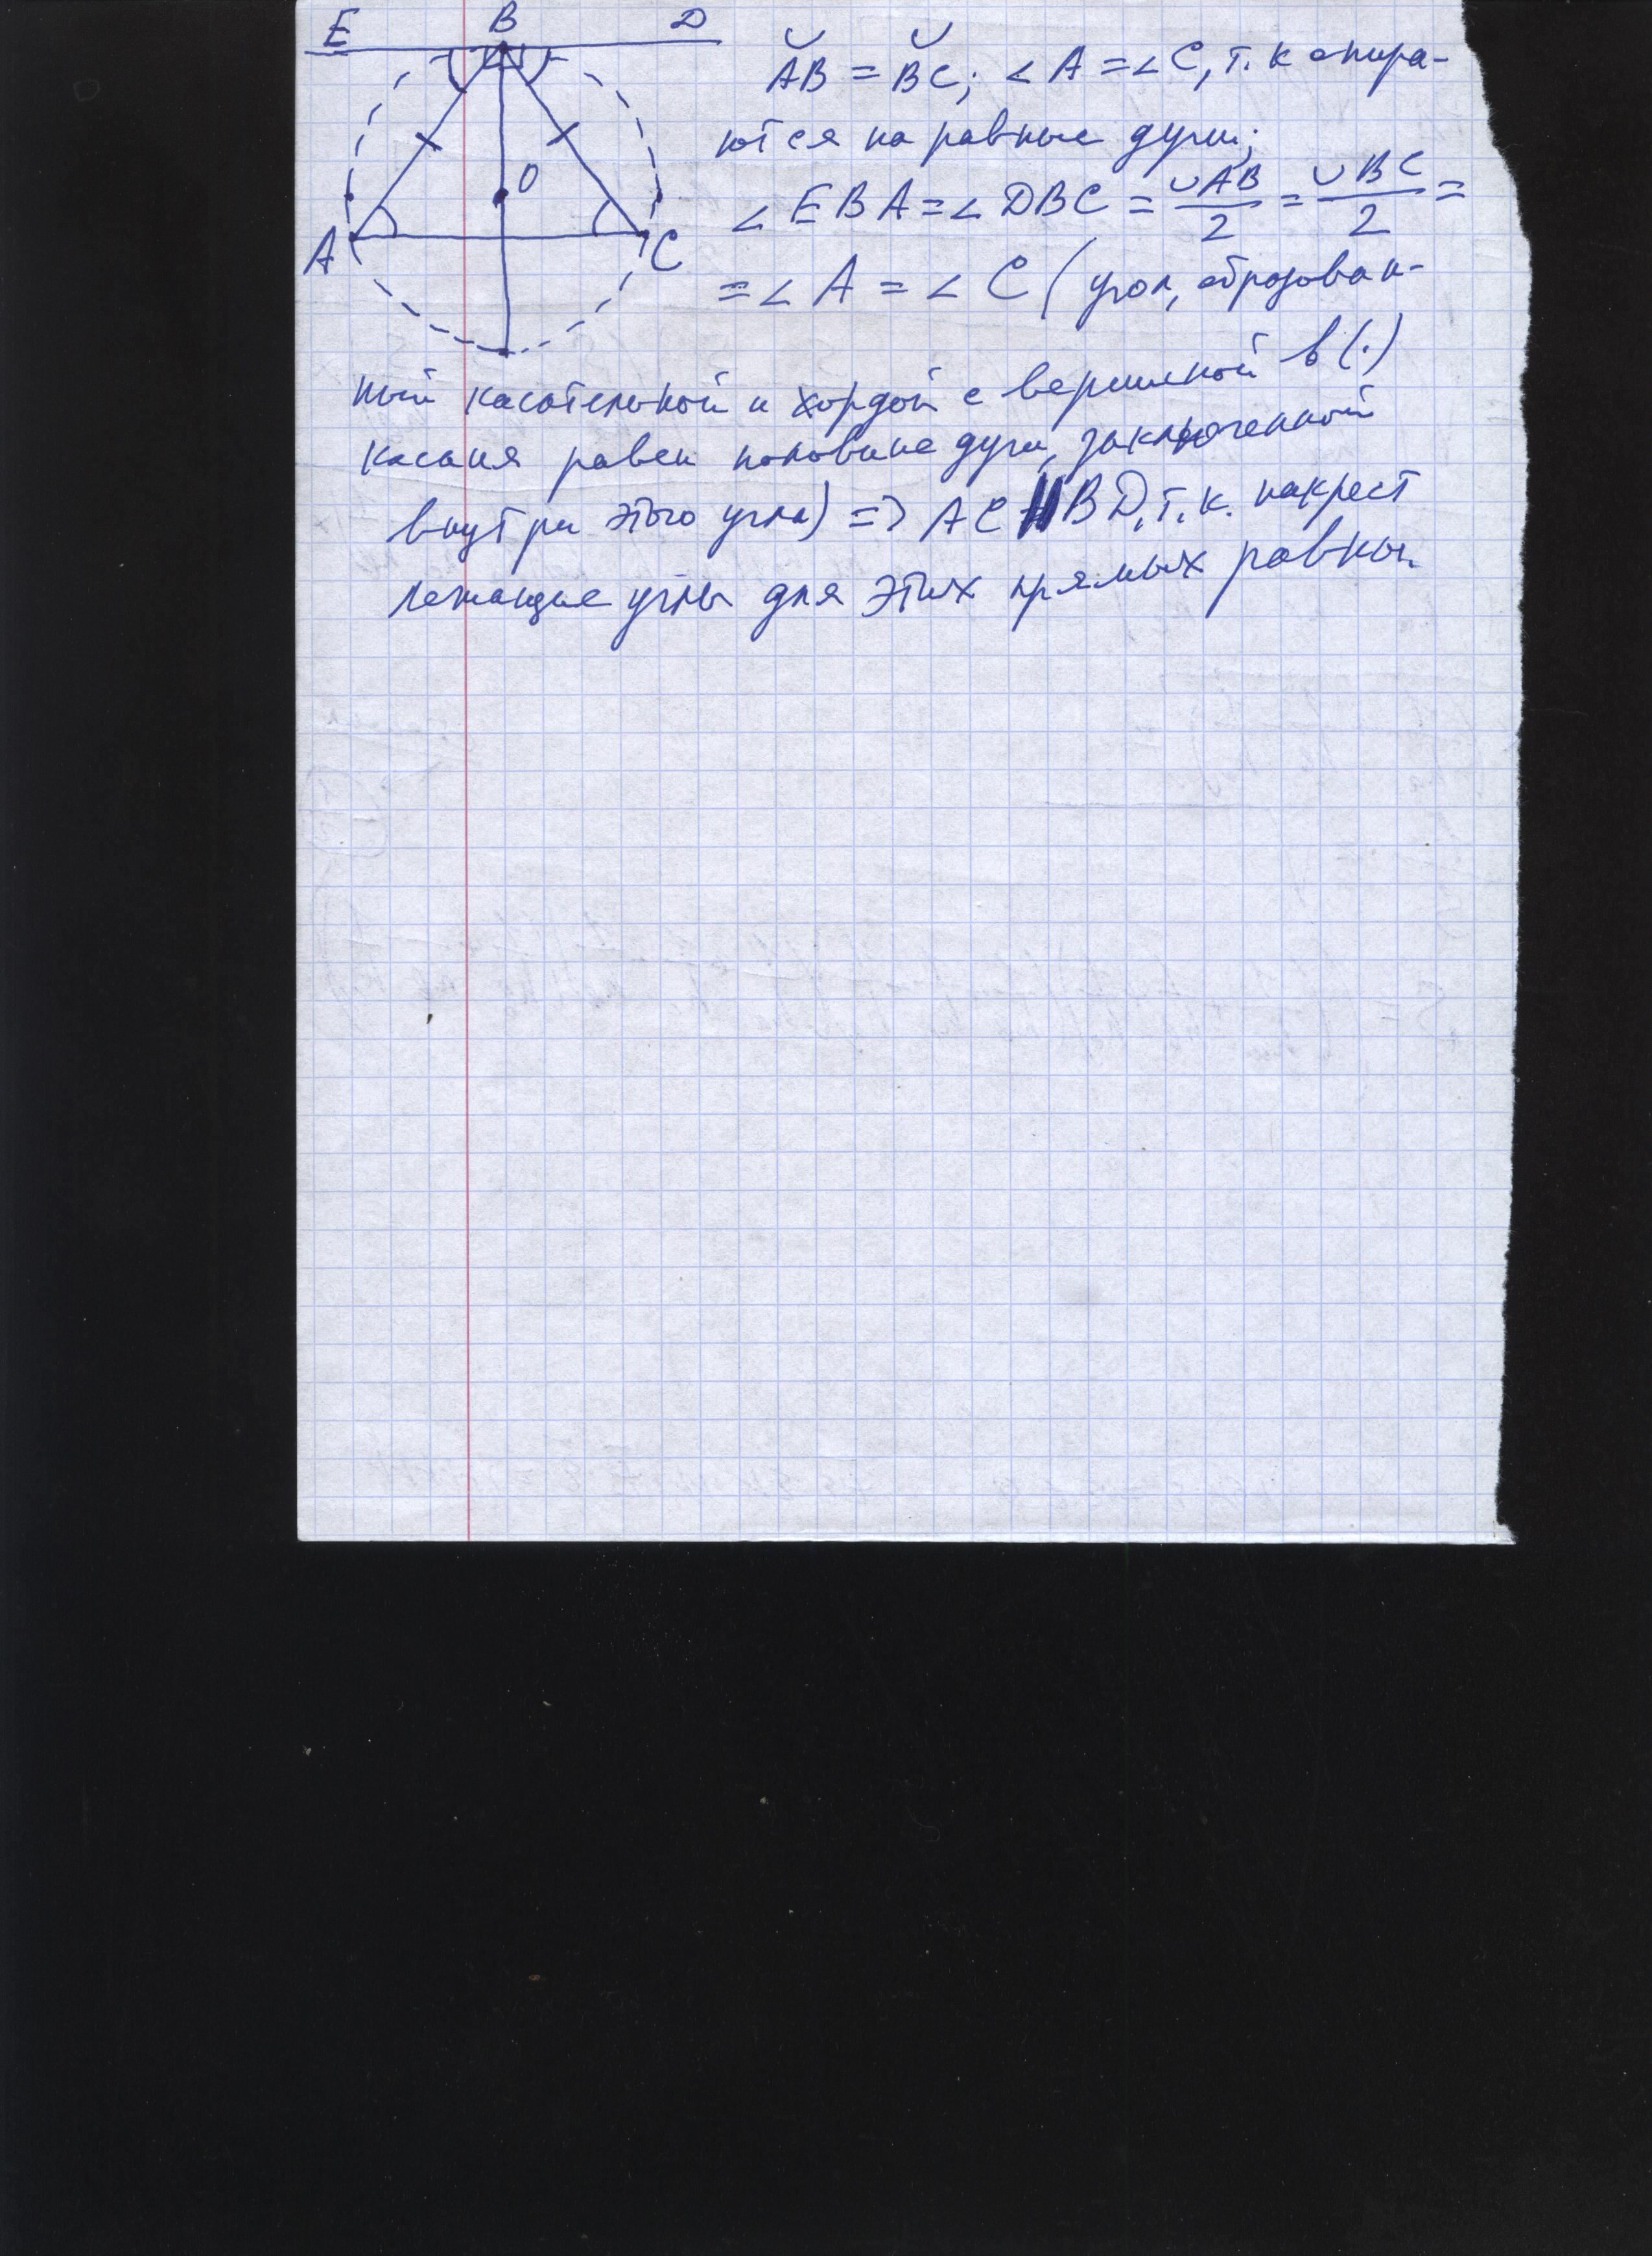 E B D
O
A C
◡AB = ◡BC; ∠A = ∠C, т. к опира-
ются на равные дуги;
∠EBA = ∠DBC = ◡AB/2 = ◡BC/2 =
= ∠A = ∠C (угол, образован-
ный касательной и хордой с вершиной в (·)
касания равен половине дуги, заключенной
внутри этого угла) => AC || BD, т. к. накрест
лежащие углы для этих прямых равны.